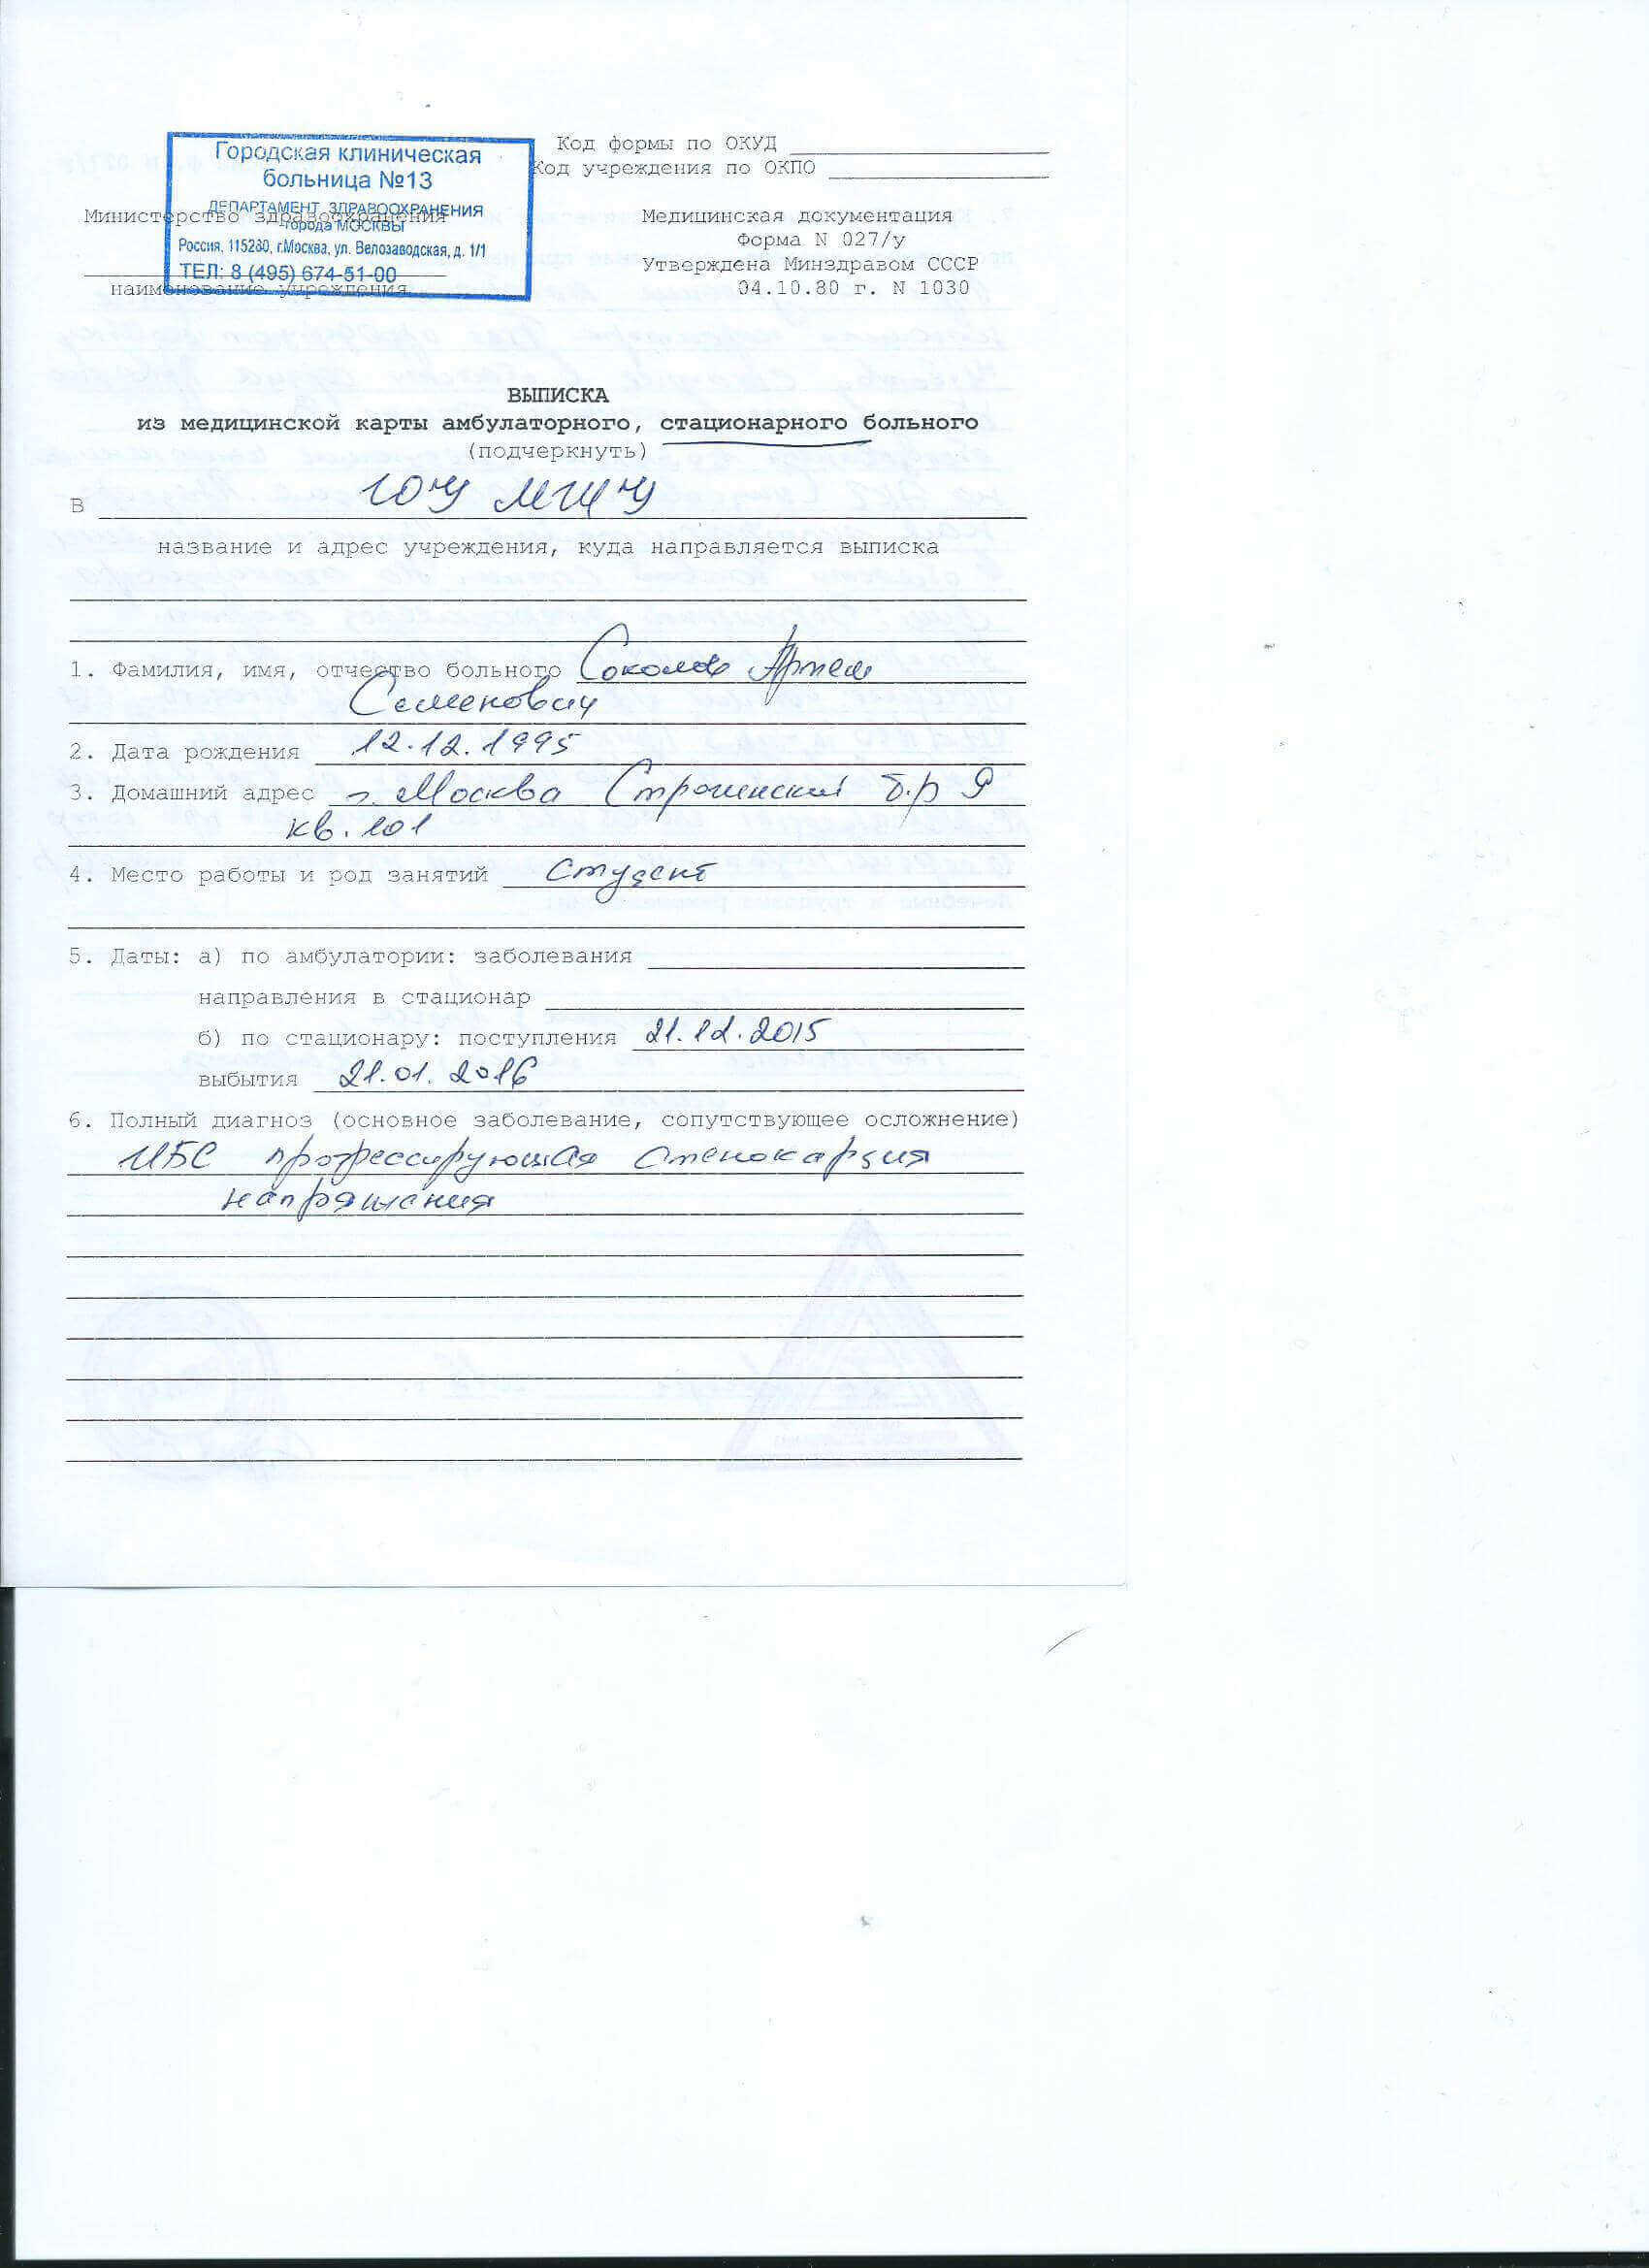 Городская клиническая
больница №13
ДЕПАРТАМЕНТ ЗДРАВООХРАНЕНИЯ
города МОСКВЫ
Россия, 115280, г.Москва, ул. Велозаводская, д. 1/1
ТЕЛ: 8 (495) 674-51-00
Код формы по ОКУД
Код учреждения по ОКПО
Министерство здравоохранения
наименование учреждения
Медицинская документация
Форма N 027/у
Утверждена Минздравом СССР
04.10.80 г. N 1030
ВЫПИСКА
из медицинской карты амбулаторного, стационарного больного
(подчеркнуть)
В
название и адрес учреждения, куда направляется выписка
1. Фамилия, имя, отчество больного Соколов Артем
Семенович
2. Дата рождения 12.12.1995
3. Домашний адрес г. Москва Строгинский б.р 9
кв. 101
4. Место работы и род занятий студент
5. Даты: а) по амбулатории: заболевания
направления в стационар
б) по стационару: поступления 21.12.2015
выбытия 21.01.2016
6. Полный диагноз (основное заболевание, сопутствующее осложнение)
ИБС прогрессирующая стенокардия
напряжения